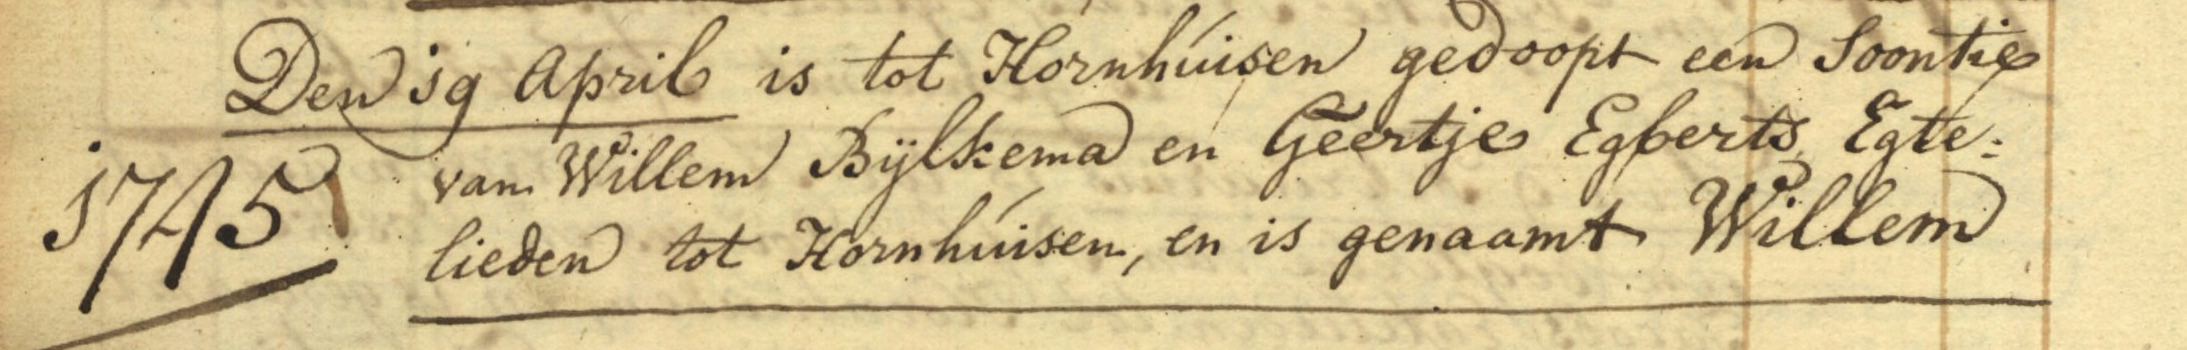 Den 19 April is tot Hornhúisen gedoopt een Soontie
1745
van Willem Bijlkema en Geertje Egberts Egte:
lieden tot Hornhúisen, en is genaamt Willem